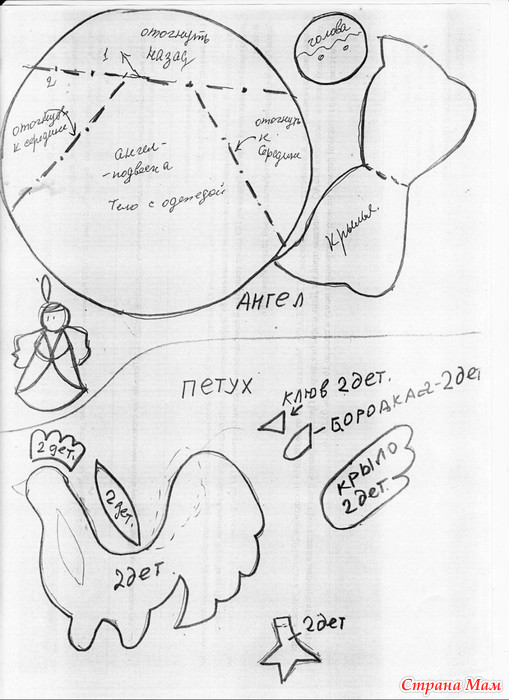 отогнуть
назад
1
2
голова
отогнуть
к середине
отогнуть
к
середине
ангел-
-подвеска
Тело с одеждой
Крылья
АНГЕЛ
ПЕТУХ
КЛЮВ 2дет.
БОРОДКА-2дет
2 дет.
2 дет.
КРЫЛО
2 дет.
2дет
2дет
Страна Мам